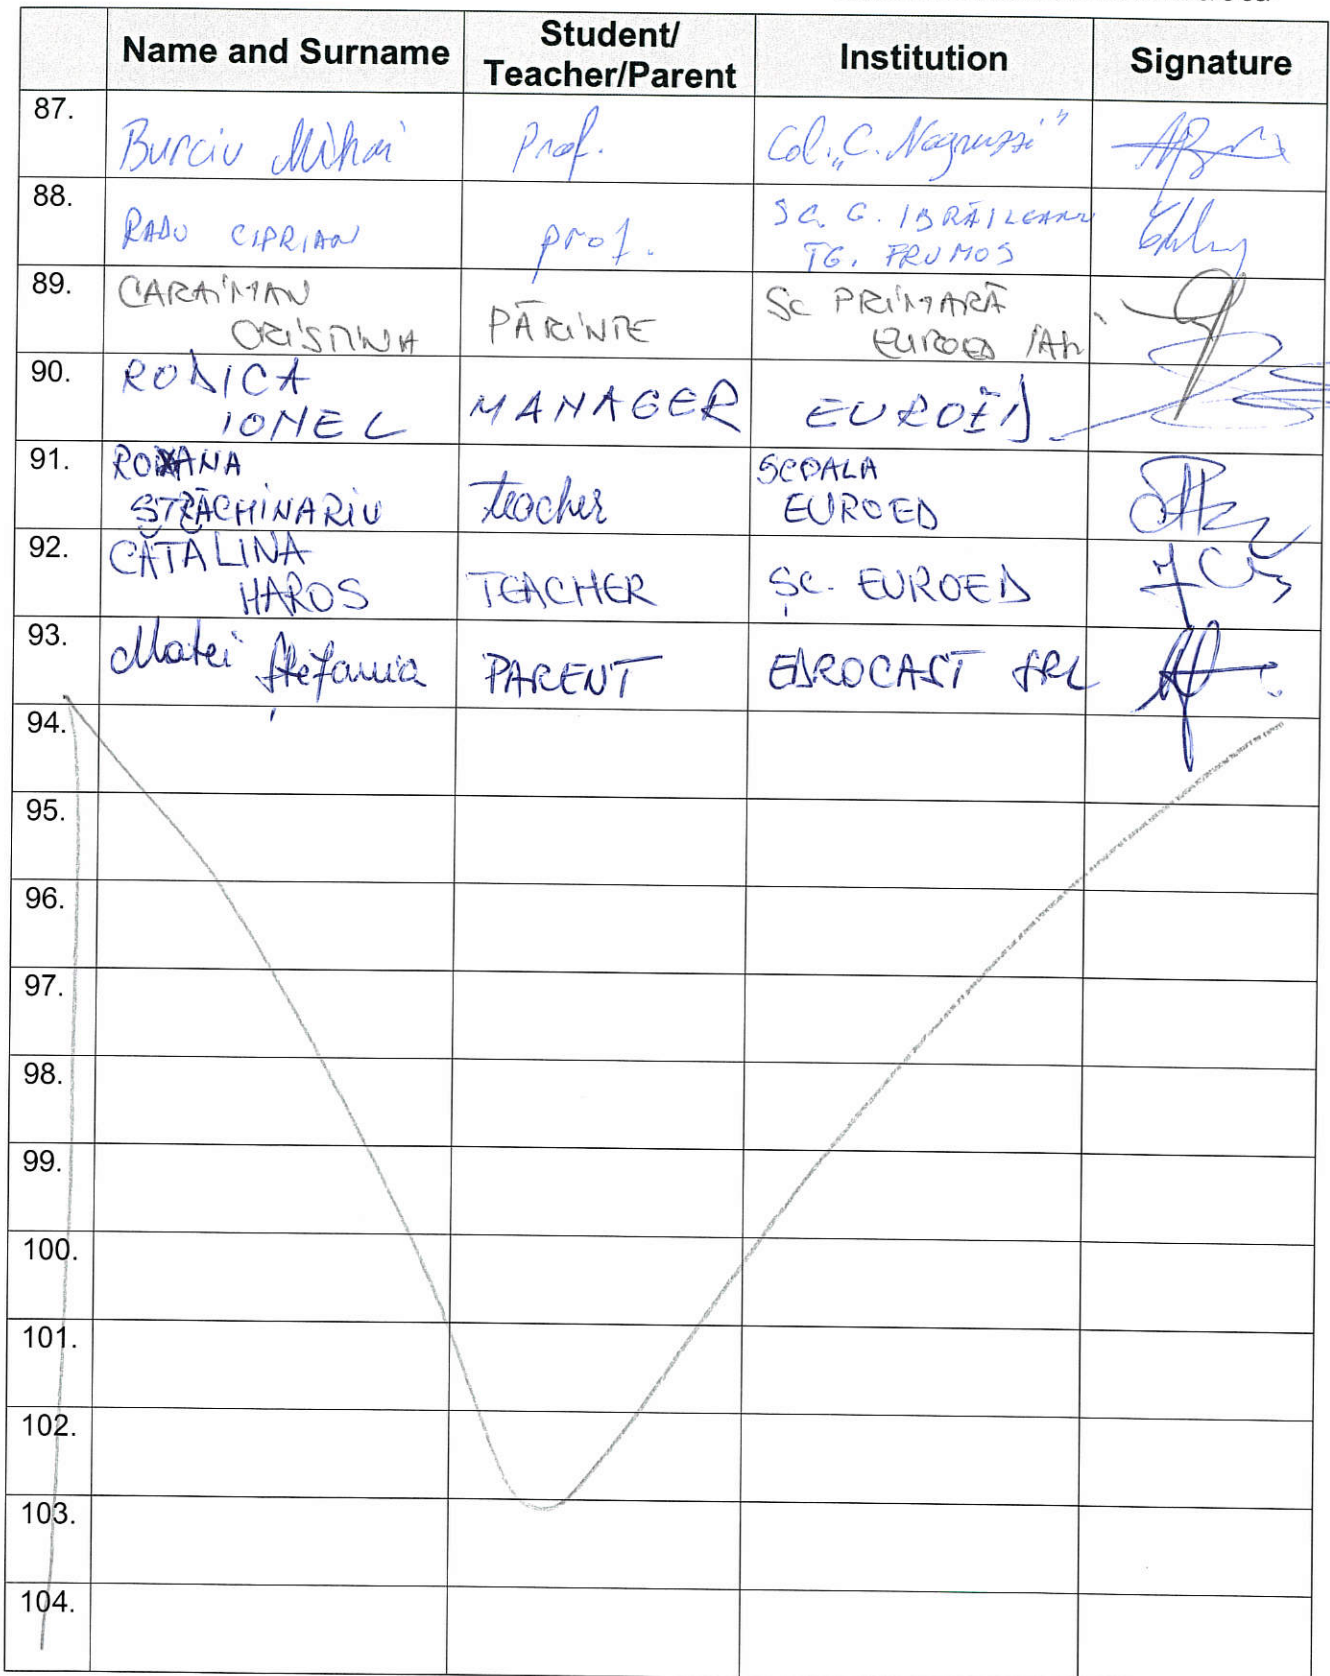 Name and Surname
Student/
Teacher/Parent
Institution
Signature
87.
Burciu Mihai
Prof.
Col. „C. Negruzzi”
88.
RADU CIPRIAN
prof.
SC. G. IBRĂILEANU
TG. FRUMOS
89.
CARAIMAN
CRISTINA
PĂRINTE
SC PRIMARĂ
EUROED
90.
RODICA
IONEL
MANAGER
EUROED
91.
ROXANA
STRĂCHINARIU
teacher
SCOALA
EUROED
92.
CĂTALINA
HAROS
TEACHER
ȘC. EUROED
93.
Matei Ștefania
PARENT
EUROCAST SRL
94.
95.
96.
97.
98.
99.
100.
101.
102.
103.
104.